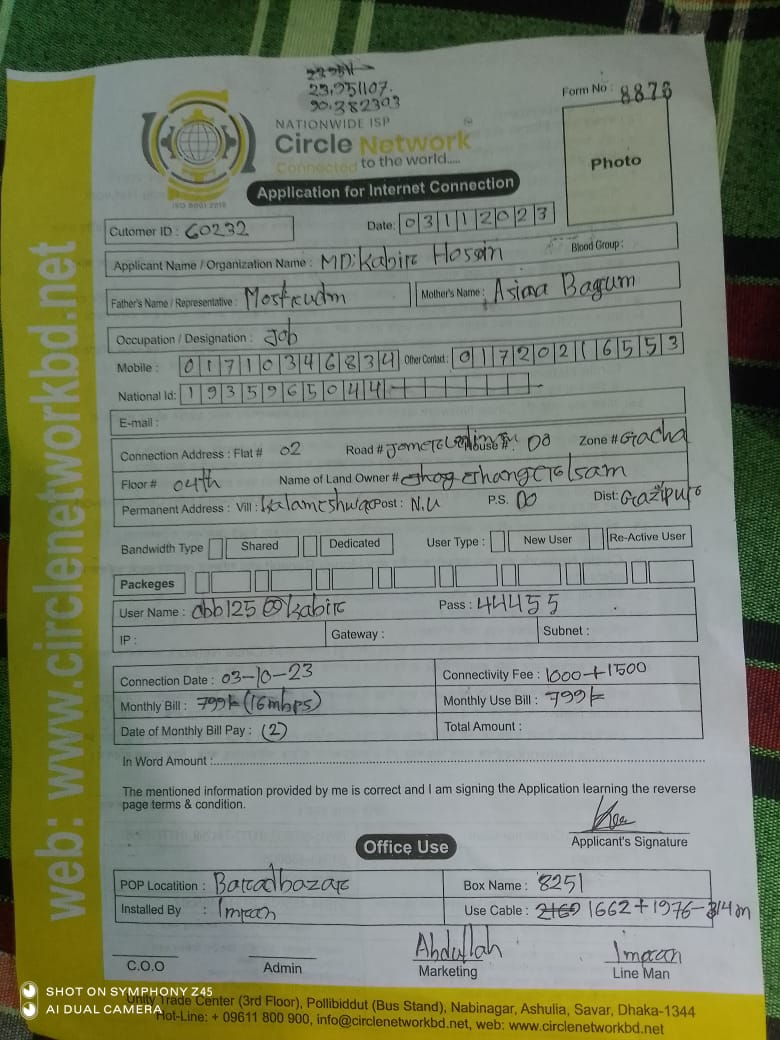 23.951107.
90.382303
Form No : 8876
NATIONWIDE ISP
Circle Network
Connected to the world.....
ISO 9001:2015
Photo
Application for Internet Connection
Cutomer ID : 60232
Date: 03112023
Applicant Name / Organization Name : MD: Kabirc Hosain
Blood Group :
Father's Name / Representative :
Mother's Name : Asiara Bagum
Occupation / Designation : Job
Mobile : 01710346834 Other Contact : 01720216553
National Id: 1935965044
E-mail :
Connection Address : Flat # 02 Road # House # : DO Zone # Gacha
Floor # 04th Name of Land Owner #
Permanent Address : Vill : Kalameshwar Post : N.U P.S. DO Dist: Gazipurc
Bandwidth Type Shared Dedicated User Type : New User Re-Active User
Packeges
User Name : abb125@kabirc Pass : 44455
IP : Gateway : Subnet :
Connection Date : 03-10-23 Connectivity Fee : 1000+1500
Monthly Bill : 799/= (16mbps) Monthly Use Bill : 799/=
Date of Monthly Bill Pay : (2) Total Amount :
In Word Amount :
The mentioned information provided by me is correct and I am signing the Application learning the reverse
page terms & condition.
Applicant's Signature
Office Use
POP Locatition : Barcadbazarc Box Name : 8251
Installed By : Imran Use Cable : 1662+1976-314m
Abdullah Imran
C.O.O Admin Marketing Line Man
Unity Trade Center (3rd Floor), Pollibiddut (Bus Stand), Nabinagar, Ashulia, Savar, Dhaka-1344
Hot-Line: + 09611 800 900, info@circlenetworkbd.net, web: www.circlenetworkbd.net
web: www.circlenetworkbd.net
SHOT ON SYMPHONY Z45
AI DUAL CAMERA